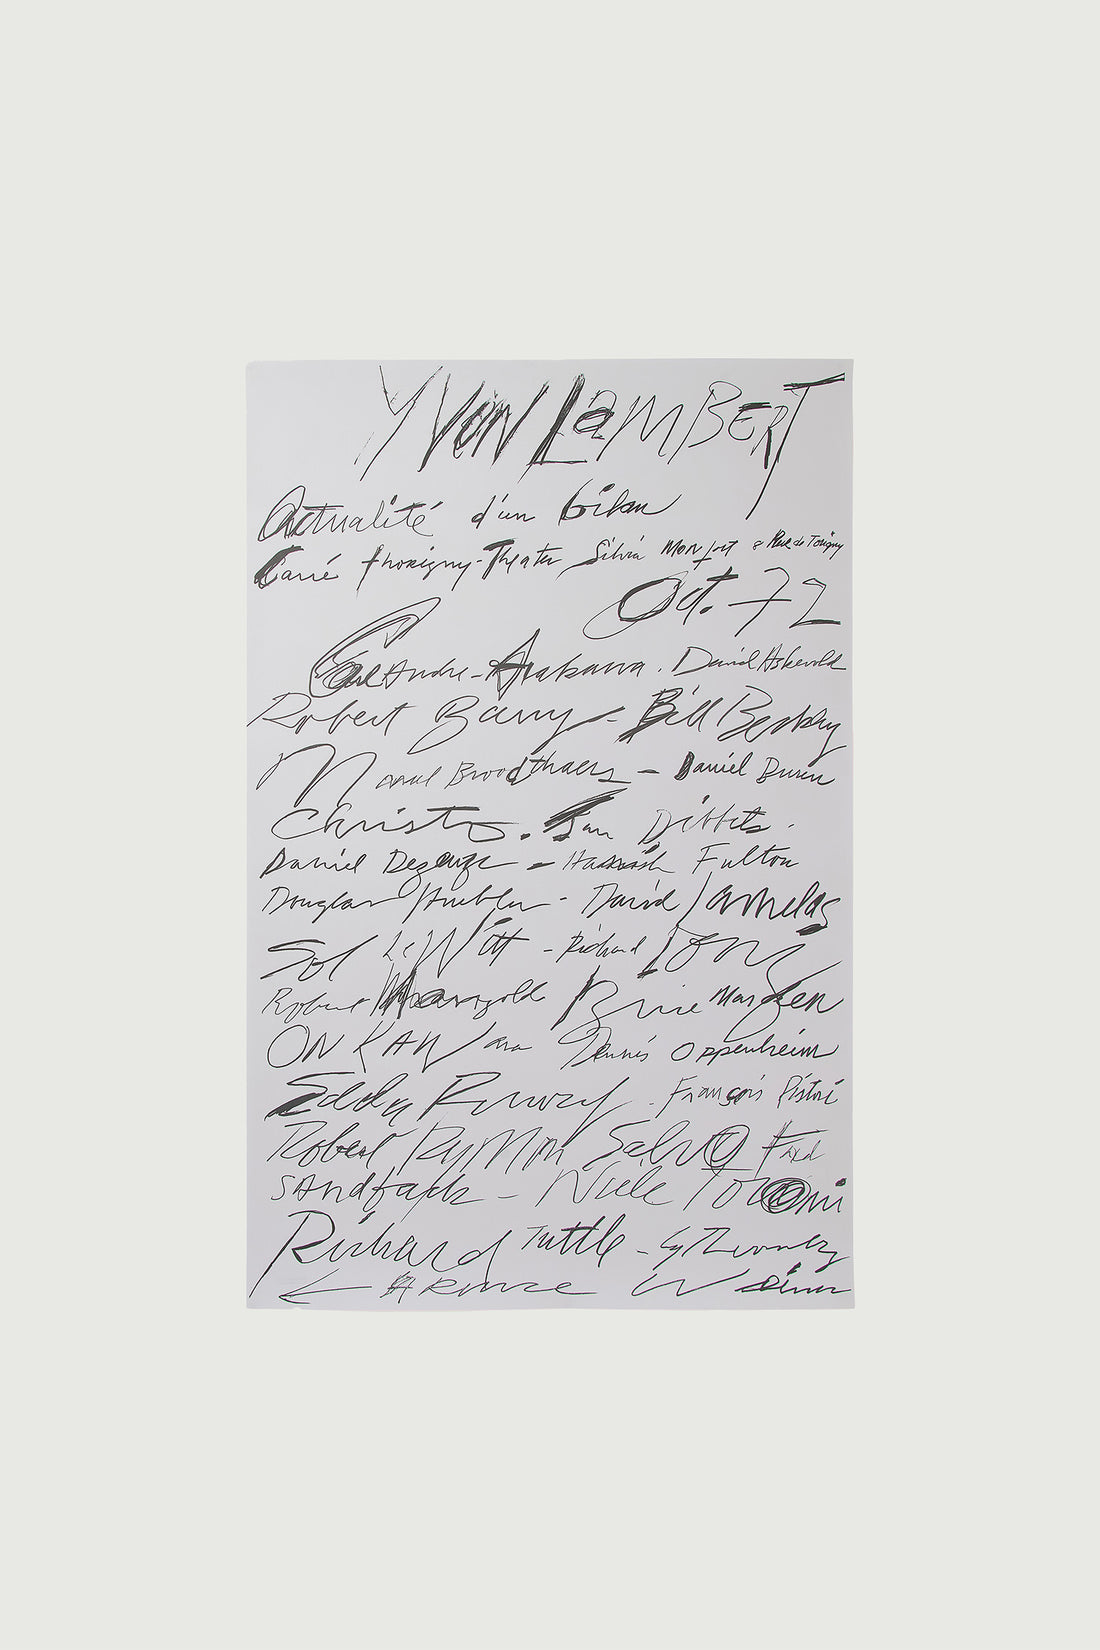 YVON LAMBERT
Actualité d'un bilan
Carré Thorigny-Theater Silvia Monfort 8 Rue de Torigny
Oct. 72
Carl Andre - Arakawa. David Askevold
Robert Barry - Bill Beckley
Marcel Broodthaers - Daniel Buren
Christo. Jan Dibbets.
Daniel Dezeuze - Hamish Fulton
Douglas Huebler - David Lamelas
Sol LeWitt - Richard Long
Robert Mangold Brice Marden
ON KAWara Dennis Oppenheim
Edda Renouf. François Ristori
Robert Ryman Salvo Fred
Sandback - Niele Toroni
Richard Tuttle - Cy Twombly
LAWRence Weiner